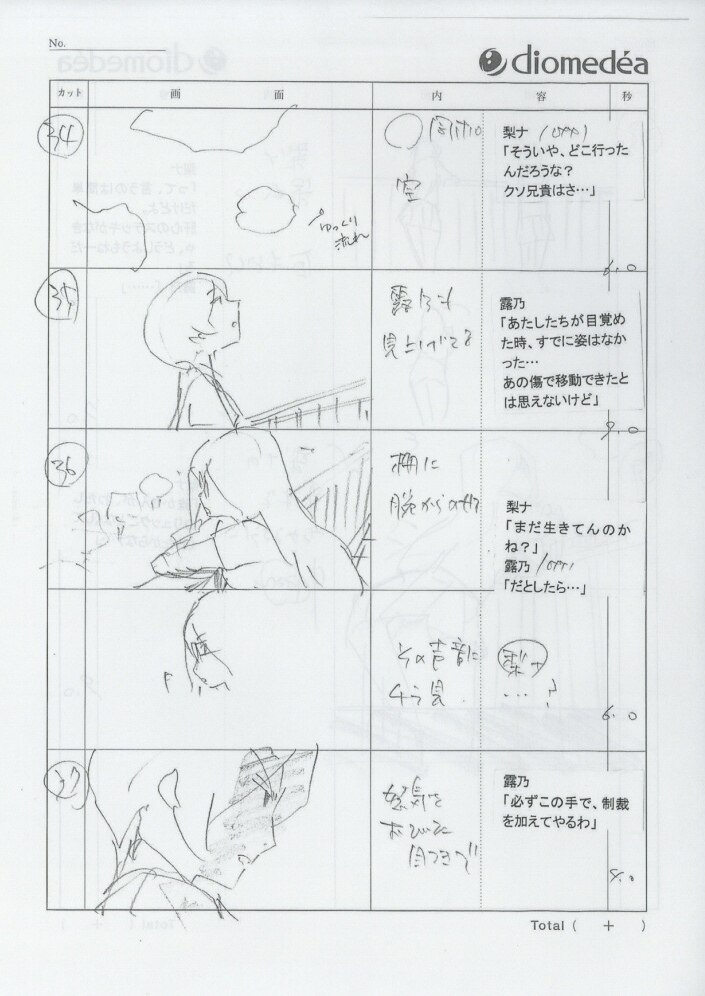 No.
diomedéa
カット 画 面 内 容 秒
34
ゆっくり
流れ
空
梨ナ
「そういや、どこ行った
んだろうな?
クソ兄貴はさ…」
6.0
35
見上げてる
露乃
「あたしたちが目覚め
た時、すでに姿はなか
った…
あの傷で移動できたと
は思えないけど」
9.0
36
柵に
腕からのせ
梨ナ
「まだ生きてんのか
ね?」
露乃
「だとしたら…」
その声音に
チラ見
梨ナ
…?
6.0
37
怒気を
おびた
目つきで
露乃
「必ずこの手で、制裁
を加えてやるわ」
8.0
Total ( + )